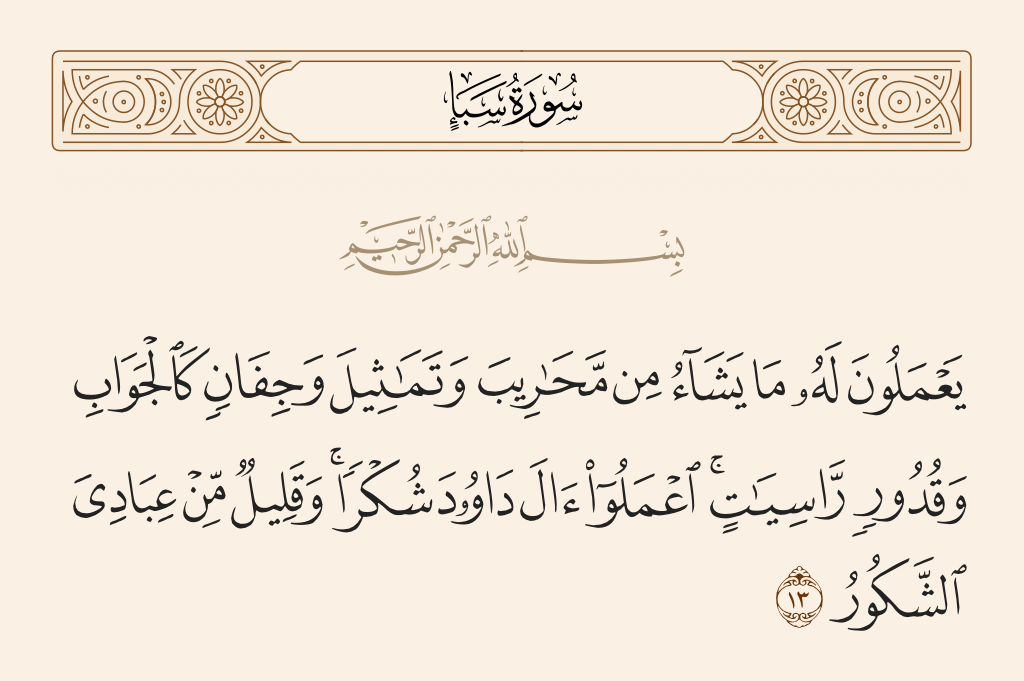 سُورَةُ سَبَإٍ
بِسْمِ ٱللَّهِ ٱلرَّحْمَٰنِ ٱلرَّحِيمِ
يَعْمَلُونَ لَهُۥ مَا يَشَآءُ مِن مَّحَٰرِيبَ وَتَمَٰثِيلَ وَجِفَانٍ كَٱلْجَوَابِ
وَقُدُورٍ رَّاسِيَٰتٍ ۚ ٱعْمَلُوٓا۟ ءَالَ دَاوُۥدَ شُكْرًا ۚ وَقَلِيلٌ مِّنْ عِبَادِىَ
ٱلشَّكُورُ ١٣